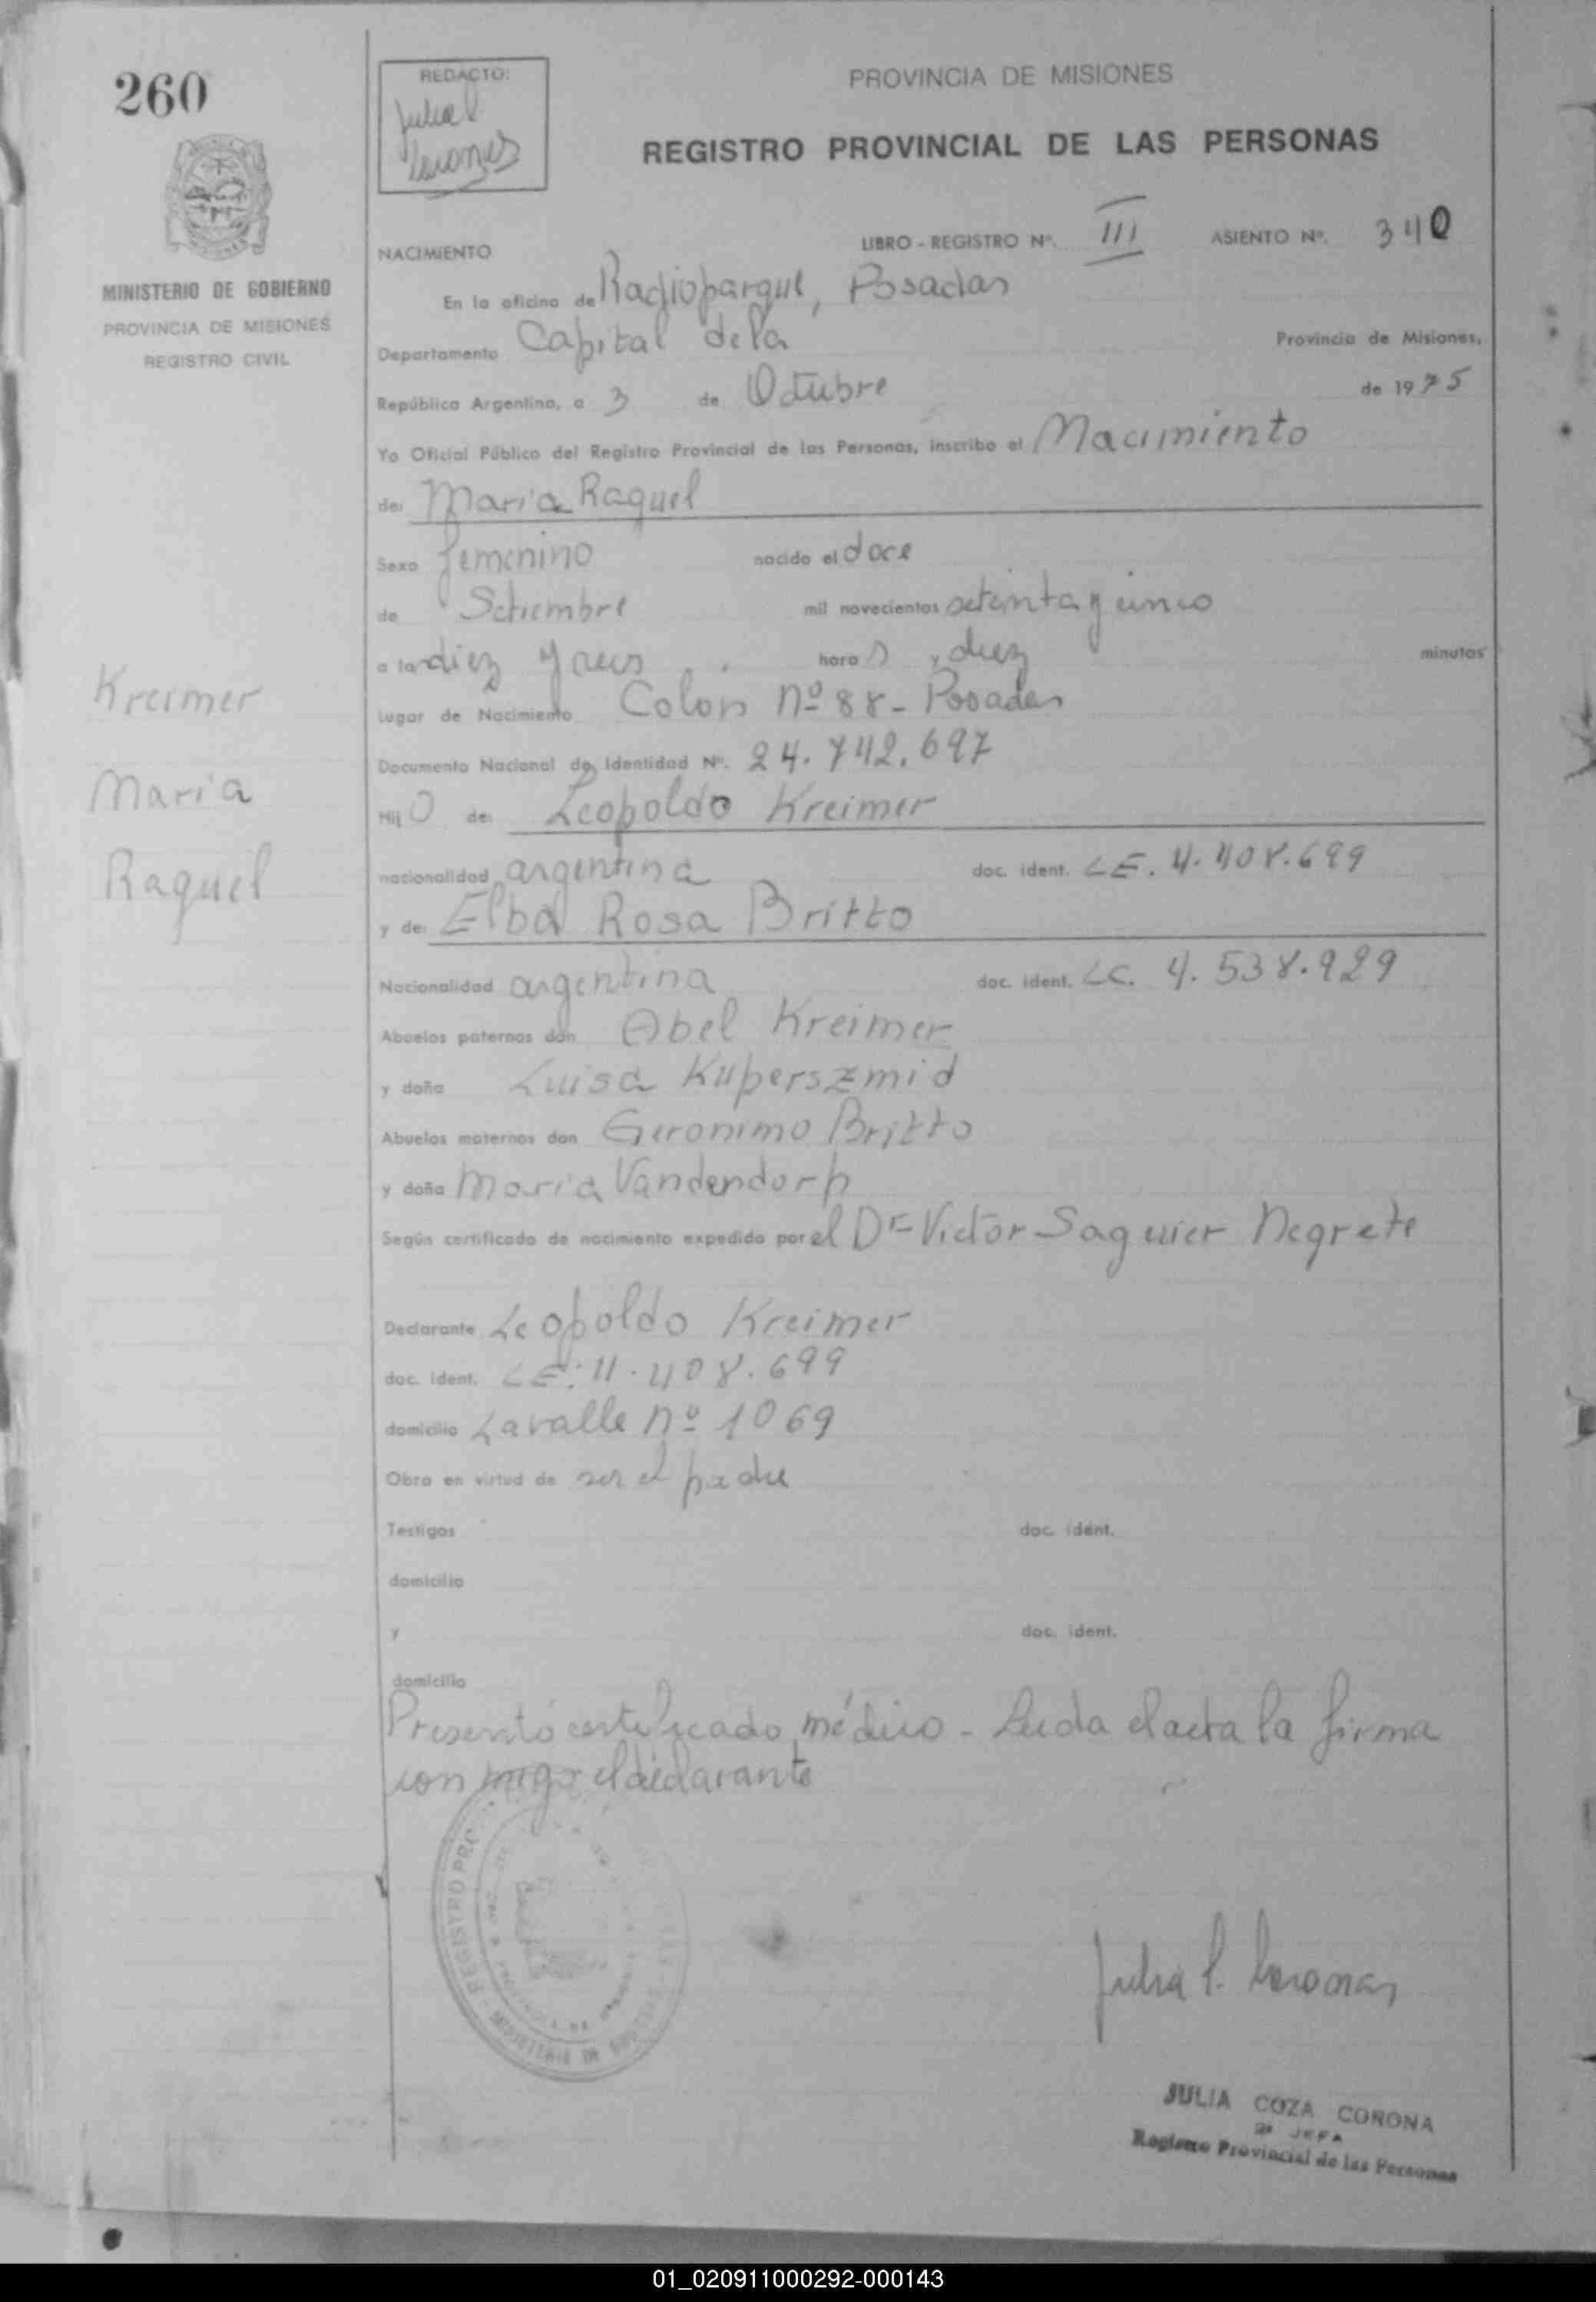 260
REDACTO:
Julia C
Coronas
PROVINCIA DE MISIONES
REGISTRO PROVINCIAL DE LAS PERSONAS
MINISTERIO DE GOBIERNO
PROVINCIA DE MISIONES
REGISTRO CIVIL
NACIMIENTO LIBRO - REGISTRO Nº. III ASIENTO Nº. 340
En la oficina de Radioparque, Posadas
Departamento Capital de la Provincia de Misiones,
República Argentina, a 3 de Octubre de 1975
Yo Oficial Público del Registro Provincial de las Personas, inscribo el Nacimiento
de: Maria Raquel
Sexo femenino nacido el doce
de Setiembre mil novecientos setenta y cinco
a la diez y seis hora s y diez minutos
Lugar de Nacimiento Colon nº 88 - Posadas
Documento Nacional de Identidad Nº. 24.742.697
Hij O de: Leopoldo Kreimer
nacionalidad argentina doc. ident. LE. 4.408.699
y de: Elba Rosa Britto
Nacionalidad argentina doc. ident. LC. 4.538.929
Abuelos paternos don Abel Kreimer
y doña Luisa Kuperszmid
Abuelos maternos don Geronimo Britto
y doña Maria Vandendorp
Según certificado de nacimiento expedido por el Dr Victor Saguier Negrete
Declarante Leopoldo Kreimer
doc. ident. LE: 4.408.699
domicilio Lavalle nº 1069
Obra en virtud de ser el padre
Testigos doc. ident.
domicilio
y doc. ident.
domicilio
Presentó certificado médico - Leida el acta la firma
con migo el declarante
Kreimer
Maria
Raquel
REGISTRO PRO
JULIA COZA CORONA
2ª JEFA
Registro Provincial de las Personas
01_020911000292-000143